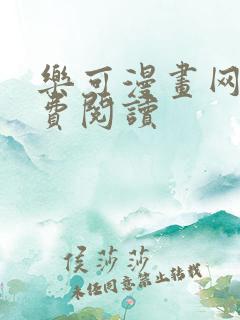 樂可漫畫网
費閱讀
侯莎莎
未经同意禁止转载